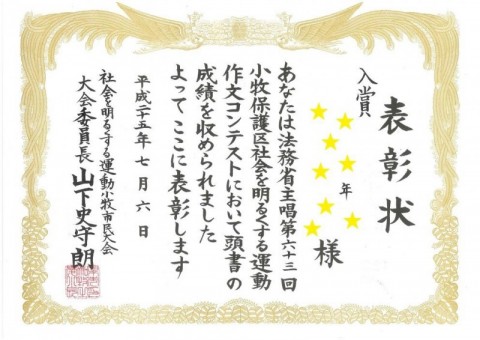 表彰状
入賞
年
様
あなたは法務省主唱第六十三回
小牧保護区社会を明るくする運動
作文コンテストにおいて頭書の
成績を収められました
よってここに表彰します
平成二十五年七月六日
社会を明るくする運動小牧市民大会
大会委員長 山下史守朗